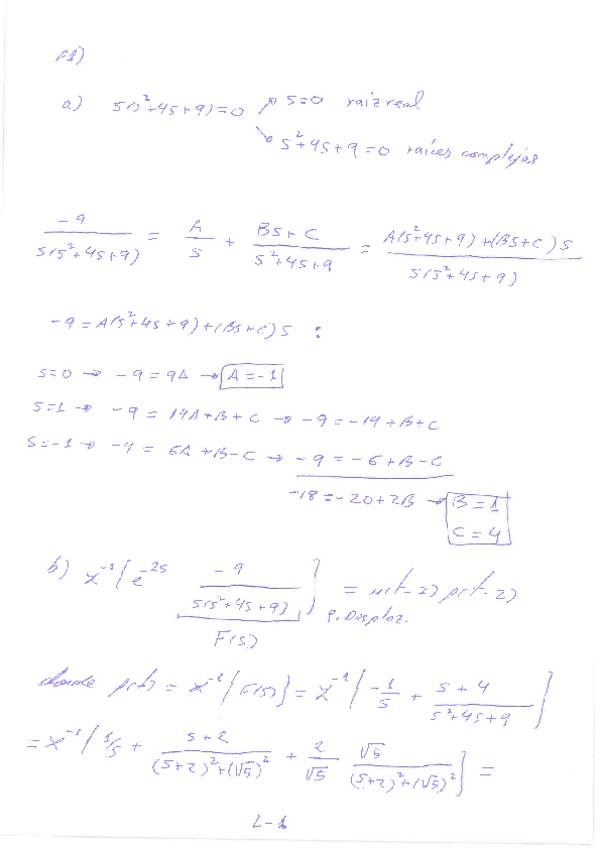 P1)
a) s(s²+4s+9)=0 ↗ s=0 raíz real
↘ s²+4s+9=0 raíces complejas
-9 / s(s²+4s+9) = A/s + (Bs+C)/(s²+4s+9) = (A(s²+4s+9)+(Bs+C)s) / s(s²+4s+9)
-9=A(s²+4s+9)+(Bs+C)s :
s=0 → -9=9A → A=-1
s=1 → -9=14A+B+C → -9=-14+B+C
s=-1 → -9=6A+B-C → -9=-6+B-C
-18=-20+2B → B=1
C=4
b) ℒ⁻¹{e⁻²ˢ -9 / s(s²+4s+9)} = u(t-2) f(t-2)
F(s) P. Desplaz.
donde f(t) = ℒ⁻¹{F(s)} = ℒ⁻¹{-1/s + (s+4)/(s²+4s+9)}
=ℒ⁻¹{1/s + (s+2)/((s+2)²+(√5)²) + 2/√5 √5/((s+2)²+(√5)²)} =
L-1